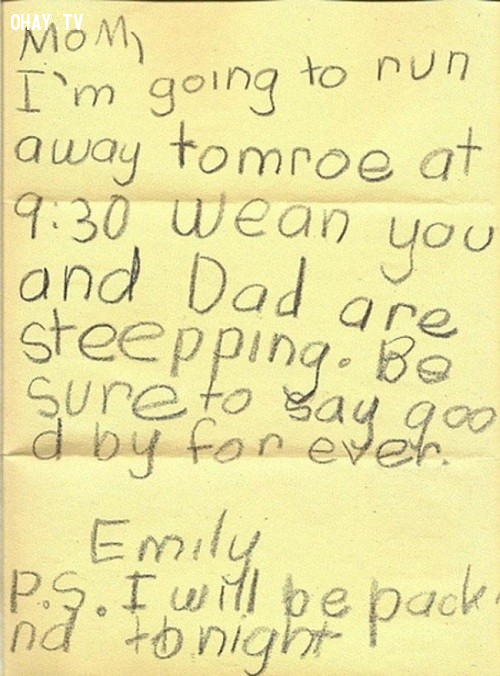 OHAY.TV
Mom,
I'm going to run
away tomroe at
9:30 wean you
and Dad are
steepping. Be
sure to say goo
d by for ever.
Emily
P.S. I will be pack
nd tonight